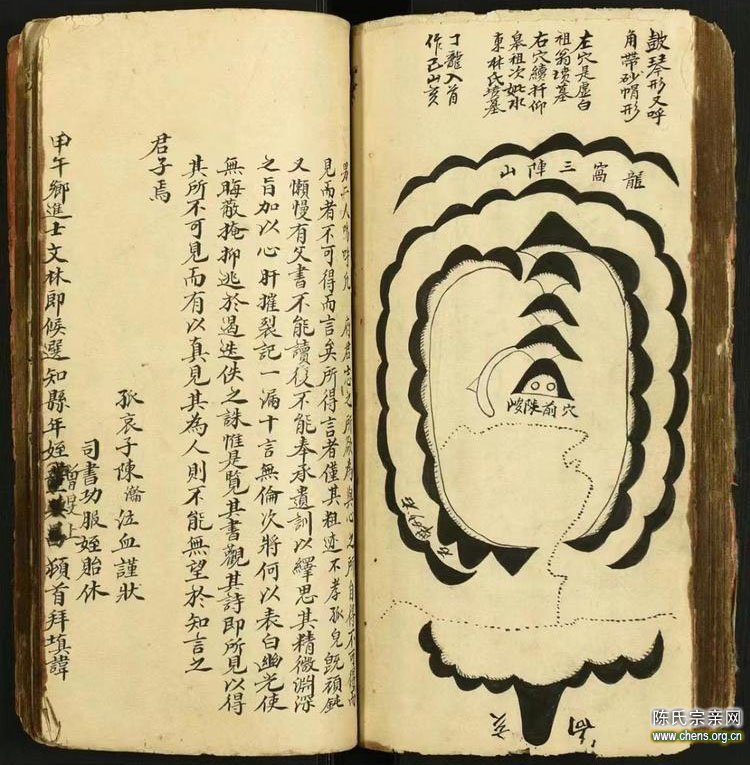 皷琴形又呼
角帶砂帽形
左穴是虛白
祖翁瓆墓
右穴續扦仰
皋祖次妣水
東林氏塔墓
丁龍入首
作巳山亥
龍窩三陣山
穴前陡峻
向亥
見而者不可得而言矣所得言者僅其粗迹不孝孤兒既頑鈍
又懶慢有父書不能讀後不能奉承遺訓以繹思其精微淵深
之旨加以心肝摧裂記一漏十言無倫次將何以表白幽光使
無晦散掩抑逃於遏迭佚之誅惟是覽其書觀其詩即所見以得
其所不可見而有以真見其為人則不能無望於知言之
君子焉
孤哀子陳瀹泣血謹狀
司書功服姪貽休
甲午鄉進士文林郎候選知縣年姪 頓首拜填諱
陈氏宗亲网
www.chens.org.cn